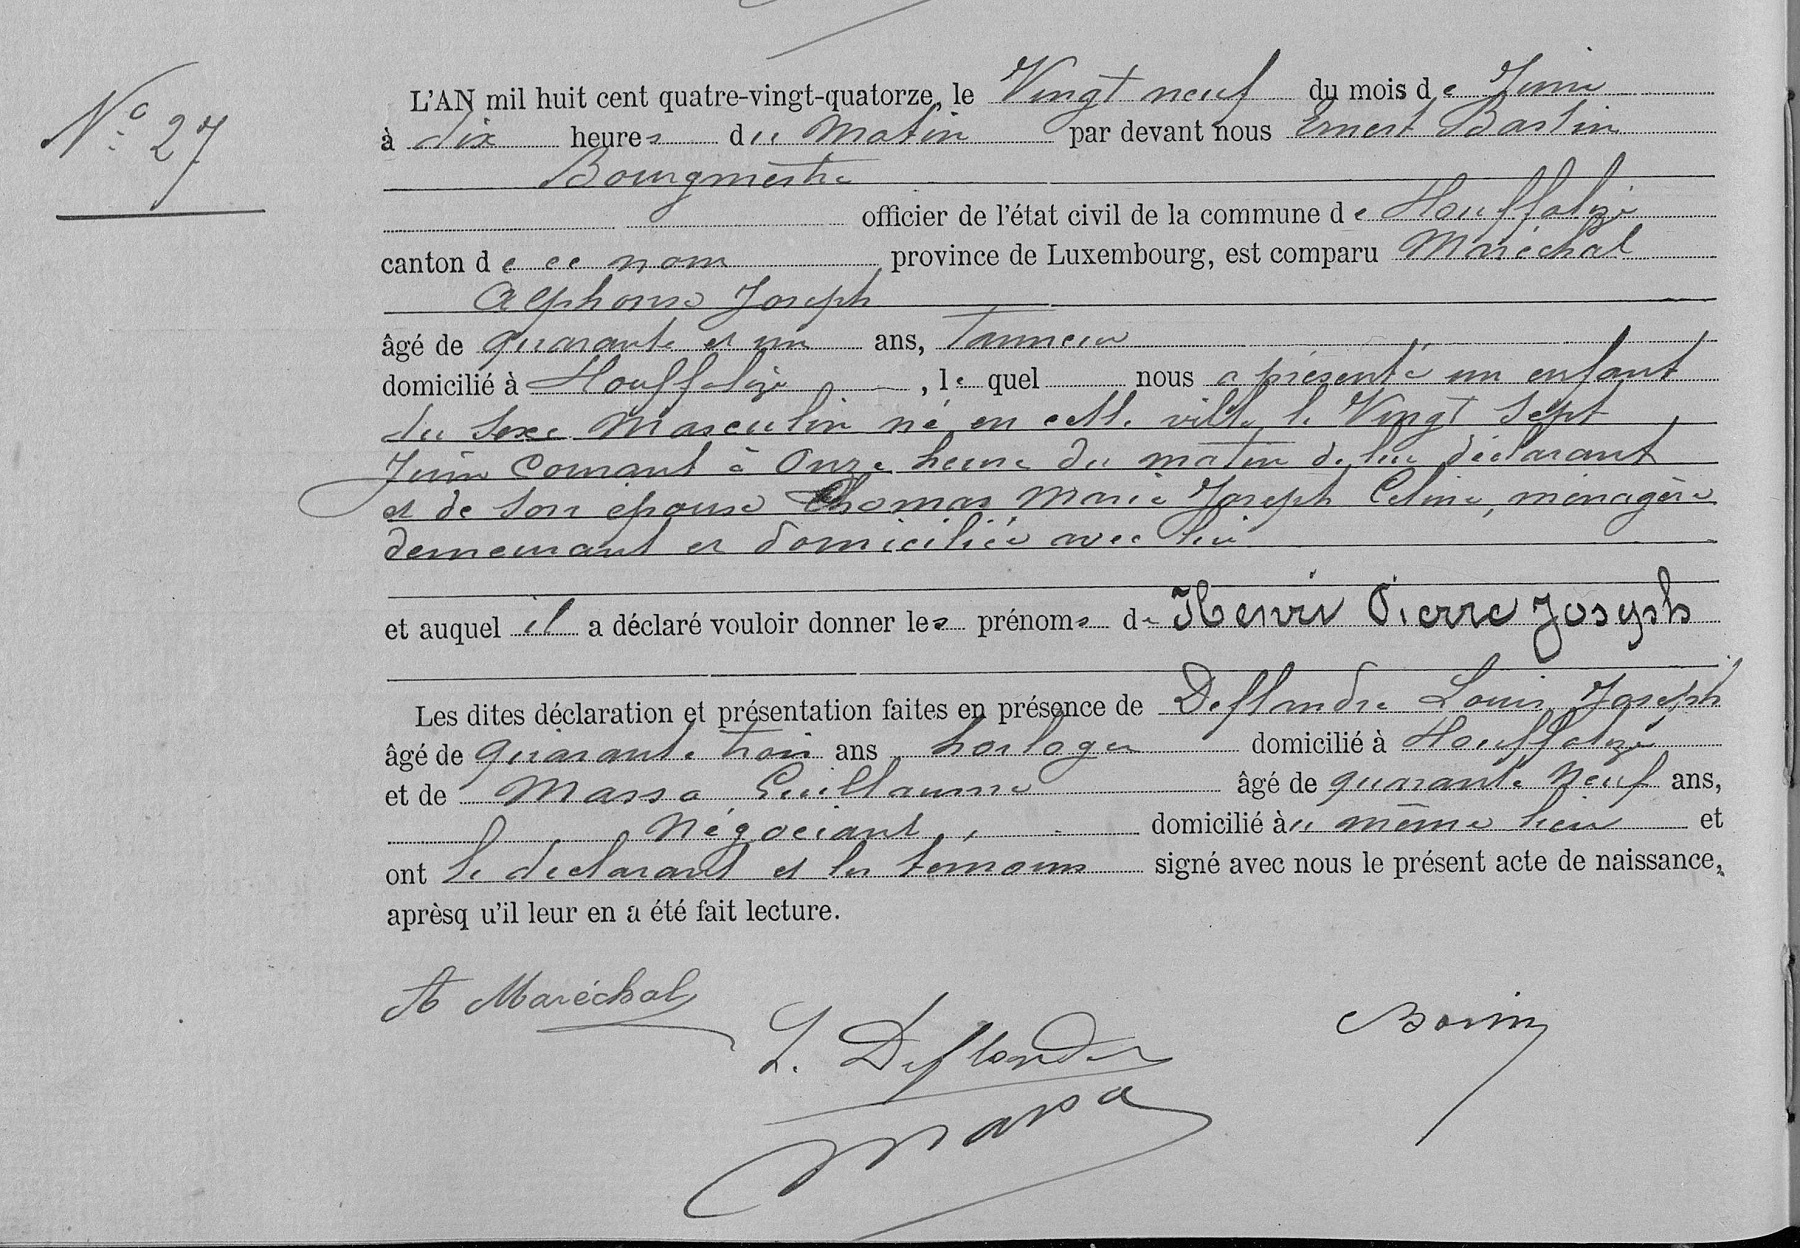 N° 27
L'AN mil huit cent quatre-vingt-quatorze, le Vingt neuf du mois de Juin
à dix heures du Matin par devant nous Ernest Bastin
Bourgmestre
officier de l'état civil de la commune de Houffalize
canton de ce nom province de Luxembourg, est comparu Maréchal
Alphonse Joseph
âgé de quarante et un ans, Tanneur
domicilié à Houffalize, lequel nous a présenté un enfant
du sexe Masculin né en cette ville le Vingt Sept
Juin Courant à Onze heure du matin de lui déclarant
et de son épouse Thomas Marie Joseph Celine, ménagère
demeurant et domiciliée avec lui
et auquel il a déclaré vouloir donner les prénoms de Henri Pierre Joseph
Les dites déclaration et présentation faites en présence de Deflandre Louis Joseph
âgé de quarante trois ans horloger domicilié à Houffalize
et de Massa Guillaume âgé de quarante Neuf ans,
Négociant, domicilié au même lieu et
ont le déclarant et les témoins signé avec nous le présent acte de naissance,
aprèsq u'il leur en a été fait lecture.
A Maréchal
L. Deflandre
Bastin
Massa